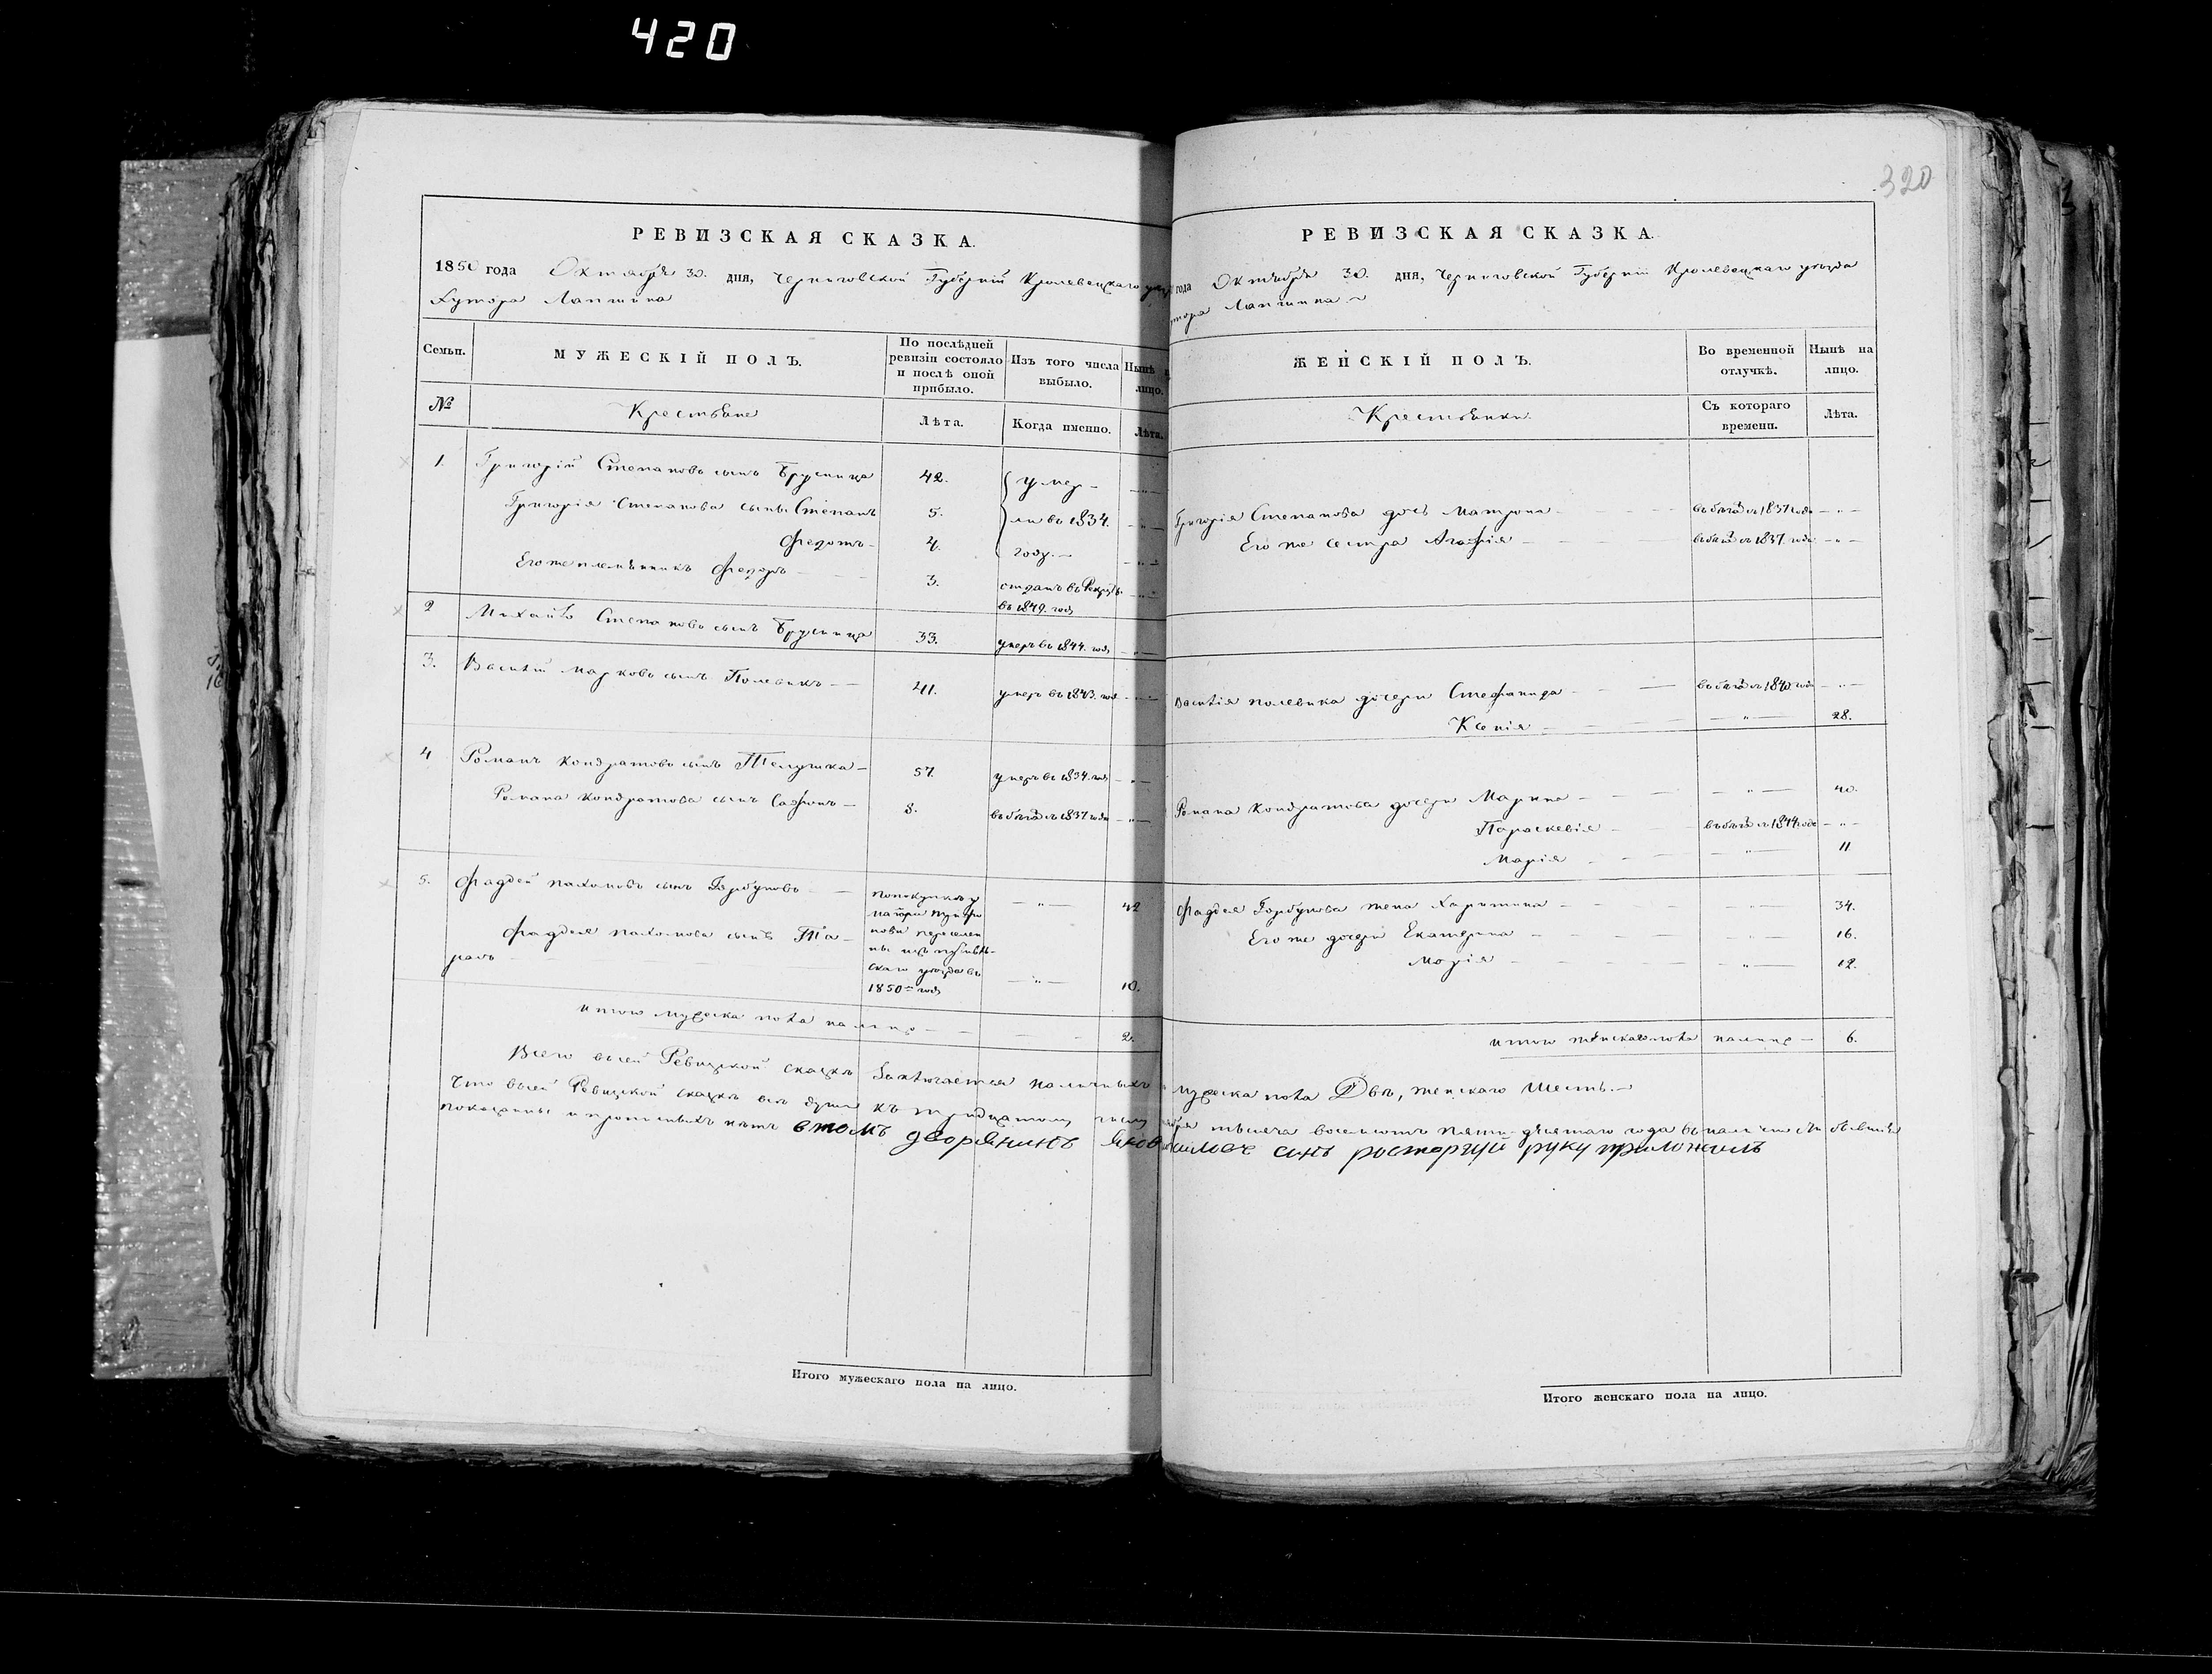 420
320
РЕВИЗСКАЯ СКАЗКА.
1850 года Октября 30. дня, Черниговской Губерніи Кролевецкаго
Хутора Лапшина
Семьи.
МУЖЕСКІЙ ПОЛЪ.
По послѣдней ревизіи состояло и послѣ оной прибыло.
Изъ того числа выбыло.
Нынѣ
лицо.
№
Крестьяне
Лѣта.
Когда именно.
Лѣта.
1. Григорій Степановъ сынъ Брусница 42. умер-
Григорія Степанова сыны Степанъ 5. ли въ 1834.
Федотъ 4. году.
Его же племянникъ Федоръ 3. отданъ въ Рекруты
въ 1849. году
2 Михайло Степановъ сынъ Брусница 33. умеръ въ 1844. году
3. Василій Марковъ сынъ Полевикъ 41. умеръ въ 1843. году
4 Романъ Кондратовъ сынъ Телушка 57. умеръ въ 1834. году
Романа Кондратова сынъ Сафонъ 8. въ бѣгахъ съ 1837 года
5. Фадей Пахомовъ сынъ Горбуновъ 42
Фадея Пахомова сынъ Та-
расъ 10.
по покупкѣ у
переселен
ны изъ
скаго уѣзда въ
1850 году
Итого мужеска пола на лицо 2.
РЕВИЗСКАЯ СКАЗКА.
года Октября 30. дня, Черниговской Губерніи Кролевецкаго уѣзда
тора Лапшина
ЖЕНСКІЙ ПОЛЪ.
Во временной отлучкѣ.
Нынѣ на лицо.
Крестьянки.
Съ котораго времени.
Лѣта.
Григорія Степанова дочь Матрона въ бѣгахъ съ 1837 года
Его же сестра Агафія въ бѣгахъ съ 1837. года
Василія Полевика дочери Стефанида въ бѣгахъ съ 1840 года
Ксенія 28.
Романа Кондратова дочери Марина 40.
Параскевія въ бѣгахъ съ 1844 года
Марія 11
Фадея Горбунова жена Харитина 34.
Его же дочери Екатерина 16.
Марія 12.
Итого женскаго пола на лицо 6.
Всего въ сей Ревизской сказкѣ заключается наличныхъ мужеска пола Двѣ, женскаго Шесть.
Что въ сей Ревизской сказкѣ всѣ души къ тридцатому числу тысяча восемьсотъ пятидесятаго года въ наличности бывшія
показаны и прописныхъ нѣтъ втомъ дворянинъ Яков синъ росторгуй руку приложилъ
Итого мужескаго пола на лицо.
Итого женскаго пола на лицо.